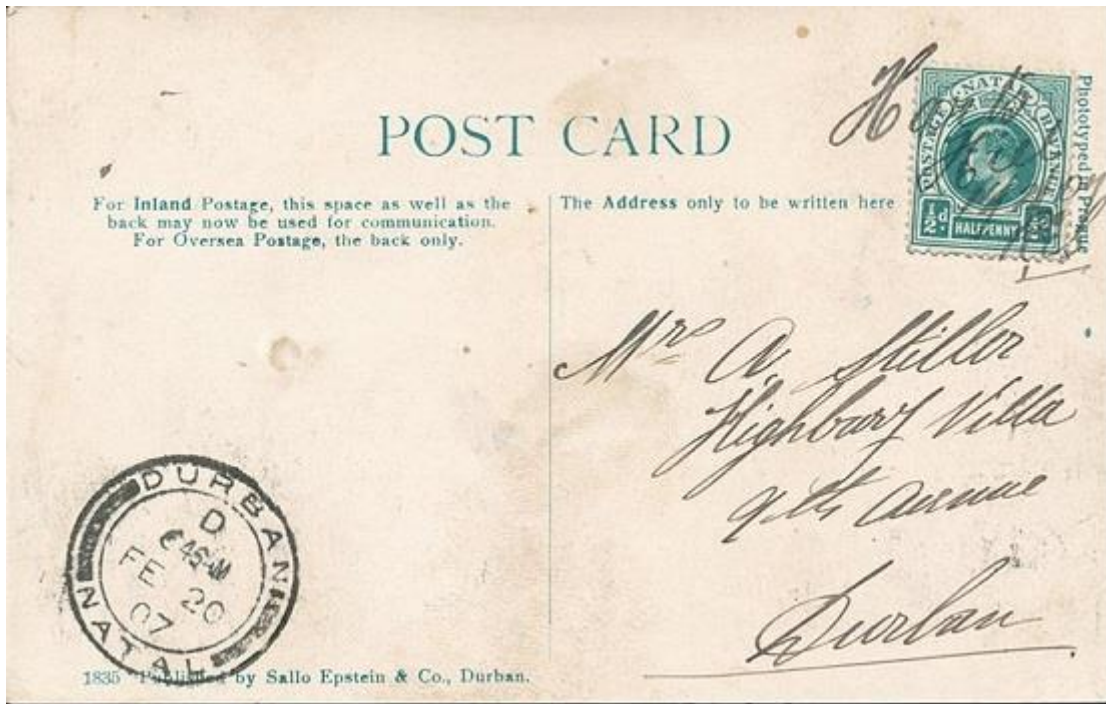 POST CARD
For Inland Postage, this space as well as the
back may now be used for communication.
For Oversea Postage, the back only.
The Address only to be written here
POSTAGE NATAL REVENUE
½d HALFPENNY
Phototyped in Prague
Mrs A Stiller
Highbury Villa
9th Avenue
Durban
DURBAN
D
6 45 AM
FE 20
07
NATAL
1835 Published by Sallo Epstein & Co., Durban.